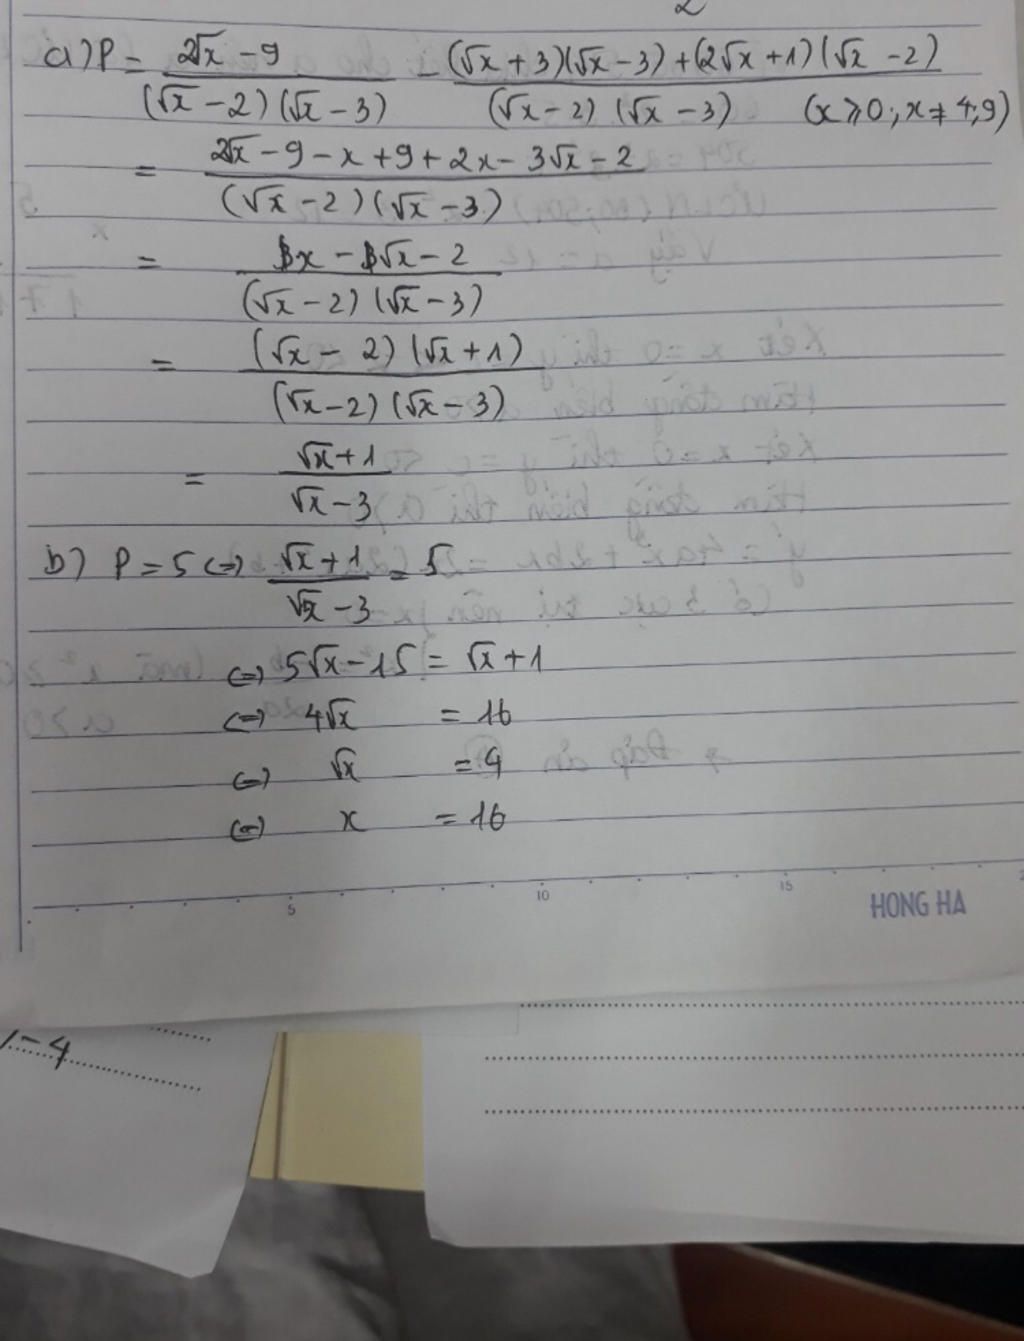 2
a) P = (2√x - 9)/((√x - 2)(√x - 3)) - ((√x + 3)(√x - 3) + (2√x + 1)(√x - 2))/((√x - 2)(√x - 3)) (x ≥ 0; x ≠ 4; 9)
= (2√x - 9 - x + 9 + 2x - 3√x - 2)/((√x - 2)(√x - 3))
= (x - √x - 2)/((√x - 2)(√x - 3))
= ((√x - 2)(√x + 1))/((√x - 2)(√x - 3))
= (√x + 1)/(√x - 3)
b) P = 5 <=> (√x + 1)/(√x - 3) = 5
<=> 5√x - 15 = √x + 1
<=> 4√x = 16
<=> √x = 4
<=> x = 16
5 10 15
HONG HA
- 4